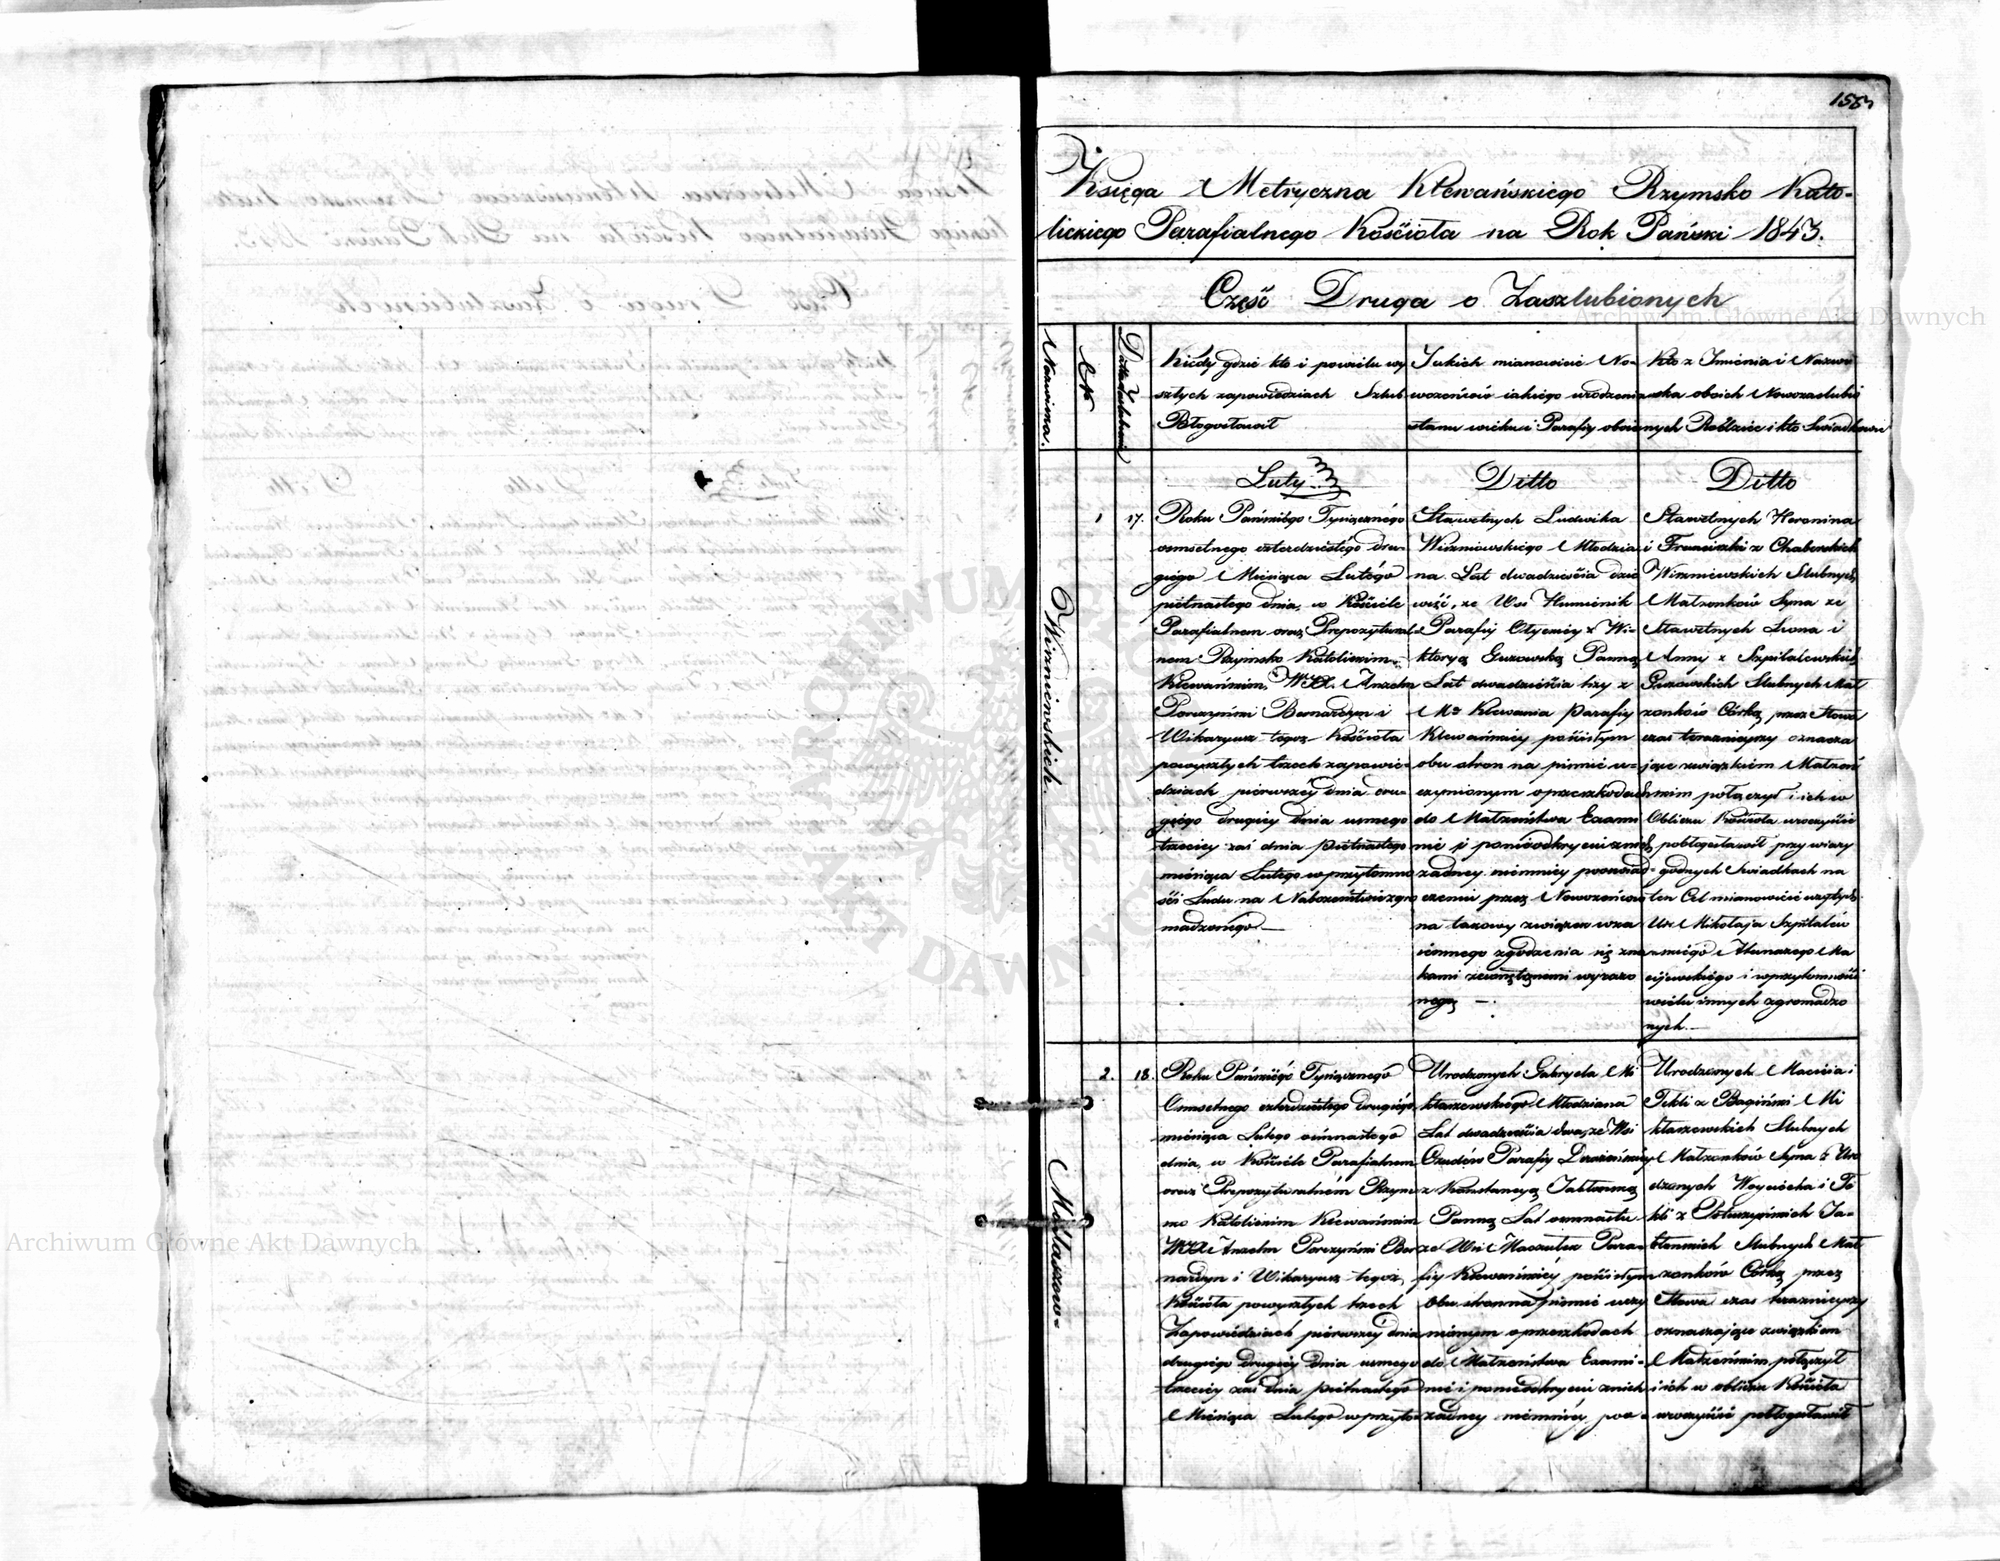 1553
Księga Metryczna Klewańskiego Rzymsko Kato-
lickiego Parafialnego Kościoła na Rok Pański 1843.
Część Druga o Zaszlubionych
Archiwum Główne Akt Dawnych
Nazwiska.
No
Data Zaślubienia
Kiedy gdzie kto i powielu wy
szłych zapowiedziach Szlub
Błogosławił
Jakich mianowicie No-
wożeńców iakiego urodzenia
stanu wieku i Parafij oboie
Kto z Imienia i Nazwi
ska oboich Nowozaslubio
nych Rodzice i kto Swiadkowie
Luty
Ditto
Ditto
Wiszniewskich.
1
17.
Roku Pańskiego Tysiącznego
osmsetnego czterdziestego dru-
giego Miesiąca Lutégo
piętnastego dnia, w Kościele
Parafialnem oraz Prepozytural-
nem Rzymsko Katolickim
Klewańskim, WX. Anzelm
Porczyński Bernardyn i
Wikaryusz tegoż Kościoła
powyszłych trzech zapowie-
dziach pierwszéy dnia dru-
giego drugiey dnia usmego
trzeciey zaś dnia piętnastego
miesiąca Lutego w przytomno
ści Ludu na Nabożeństwie zgro
madzonégo —
Sławetnych Ludwika
Wiszniewskiego Młodzia
na Lat dwadzieścia dzie
więć, ze Wsi Humienik
Parafij Ołyckiey z Wi-
ktoryą Guzowską Panną
Lat dwadzieścia trzy z
Mka Klewania Parafij
Klewańskiey pościsłym
obu stron na piśmie u-
czynionym o przeszkodach
do Małżeństwa Exami
nie i poniéodkryciu z nich
żadney niemniey pooswiad
czeniu przez Nowożeńców
na takowy związek wza
iemnego zgodzenia się zna
kami zewnętrznemi wyrażo
nego —.
Sławetnych Heronima
i Franciszki z Chaborskich
Wiszniewskich Slubnych
Małżonków Syna ze
Sławetnych Leona i
Anny z Szpitalewskich
Guzowskich Slubnych Mał
żonków Córką przez Słowa
czas terazniejszy oznacza
jące związkiem Małżeń
skim połączył i ich w
Obliczu Kościoła uroczyście
pobłogosławił przy wiary
godnych Swiadkach na
ten Cel mianowicie użytych
Ur: Mikołaja Szpitalew
skiégo Ma
cijewskiégo i w przytomności
wielu innych zgromadzo
nych.—
Mikłaszew=
2.
18.
Roku Pańskiégo Tysiącznégo
Osmsetnego czterdziestego drugiégo
miesiąca Lutego osimnastego
dnia, w Kościele Parafialnem
oraz Prepozyturalném Rzym
sko Katolickim Klewańskim
WX. Anzelm Porczyński Ber
nardyn i Wikaryusz tegoż
Kościoła powyszłych trzech
Zapowiedziach pierwszey dnia
drugiego drugiéy dnia usmego
trzeciey zaś dnia piętnastego
Miesiąca Lutego w przyto-
Urodzonych Gabryela Mi
kłaszewskiégo Młodziana
Lat dwadzieścia dwa, ze Wsi
Parafij Derażeńskiey
z Konstancyą Jabłonską
Panną Lat osmnastu
ze Wsi Parа-
fij Klewańskiéy pościsłym
Obu stron na piśmie uczy
nionym o przeszkodach
do Małżeństwa Exami-
nie i ponieodkryciu z nich
żadney niemniey, poo=
Urodzonych Macieia i
Tekli z Bagiński Mi
kłaszewskich Slubnych
Małżonków Syna z Uro
dzonych Woyciecha i Te
kli z Ja-
błonskich Slubnych Mał
żonków Córką przez
Słowa czas terazniejszy
oznaczające związkiem
Małżeńskim połączył
i ich w obliczu Kościoła
uroczyście pobłogosławił
Archiwum Główne Akt Dawnych
ARCHIWUM GŁÓWNE AKT DAWNYCH